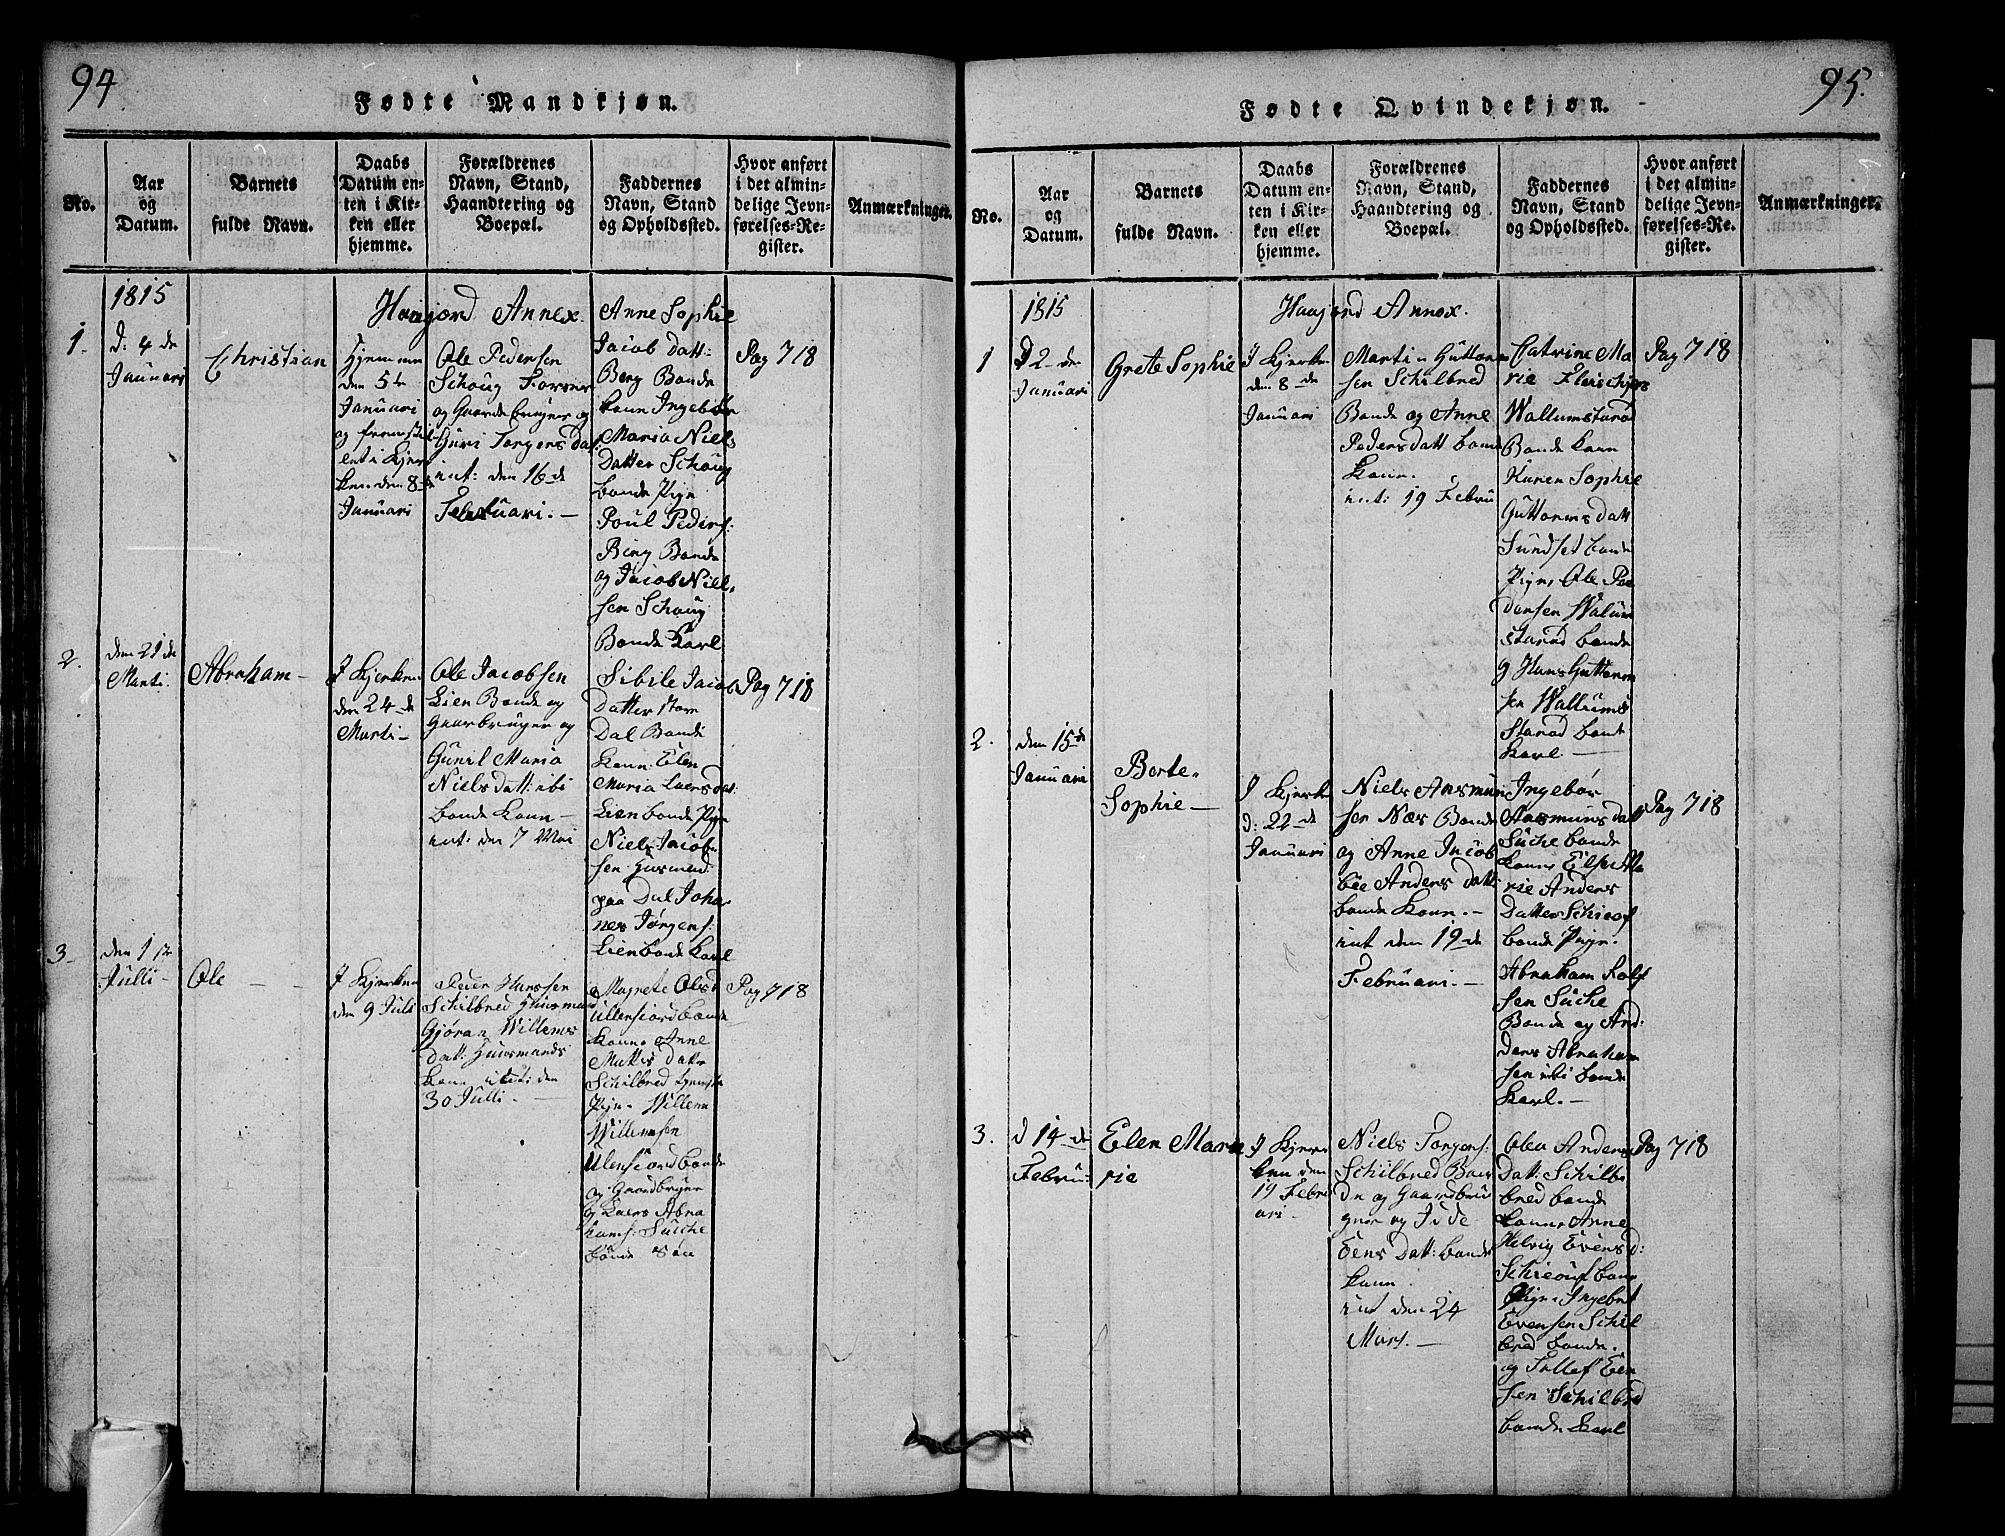 94
Fødte Mandkjøn.
No.
Aar
og
Datum.
Barnets
fulde Navn.
Daabs
Datum en-
ten i Kir-
ken eller
hjemme.
Forældrenes
Navn, Stand,
Haandtering og
Boepæl.
Faddernes
Navn, Stand
og Opholdssted.
Hvor anført
i det almin-
delige Jevn-
førelses-Re-
gister.
Anmærkninger.
1815
1.
d: 4 de
Januari
Christian
Annex.
Hjemme
den 5te
Januari
og fremstil
let i Kjer
ken den 8de
Januari
Ole Pedersen
Schoug
og Gaardebruger og
Guri Torgersdat
int: den 16de
Februari.—
Anne Sophie
Jacob Datt:
Berg Bonde
kone Ingebor
Maria Niels
Datter Schoug
bonde Pige
Poul Peders:
Berg Bonde
og Jacob Niel-
sen Schoug
Bonde Karl
Pag 718
2.
den 21de
Marti.
Abraham—
I Kjerken
den 24de
Marti—
Ole Jacobsen
Lien Bonde og
Gaarbruger og
Gunil Maria
Nielsdatt: ibi
bonde Kone—
int: den 7 Mai
Sibile Jacobs
Datter store
Dal Bonde
kone Elen
Maria Laersdat
Lien bonde Pige
Niels Jacob
sen Husmand
paa Dal Joha
nes Jørgens:
Lien bonde Karl
Pag 718
3-
den 1ste
Julli—
Ole
I Kjerken
den 9 Juli
Peder Hanssen
Schilbred Huusmand
Gjøran Willems
Datt: Huusmands
kone int: den
30 Julli.
Magrete Olesd
Ullensiord bonde
kone Anne
Mattis Datr
Schilbred tjeneste
Pige Willem
Willemsen
Ulensiord bonde
og Gaardbruger
og Laers Abra
hams: Suche
bonde Søn
Pag 718
95.
Fødte Qvindekjøn.
No.
Aar
og
Datum.
Barnets
fulde Navn.
Daabs
Datum en-
ten i Kir-
ken eller
hjemme.
Forældrenes
Navn, Stand,
Haandtering og
Boepæl.
Faddernes
Navn, Stand
og Opholdssted.
Hvor anført
i det almin-
delige Jevn-
førelses-Re-
gister.
Anmærkninger.
1815
1
D 2 den
Januari
Grete Sophie
Annex.
I Kjerken
den 8de
Januari
Martin Guttorm
sen Schilbred
Bonde og Anne
Pedersdatt bonde
Kone.
int: 19 Febru
Catrine Ma
rie
Wallumstarød
Bonde kone
Karen Sophie
Guttormsdatt
Sundset bonde
Pige, Ole Pe
dersen Walum
starød bonde
og Hans Guttorm
sen Wallums
Starød bond
Karl—
Pag 718
2.
den 15de
Januari
Berte
Sophie—
I Kjerken
d: 22de
Januari
Niels Aasmun
sen Næs Bonde
og Anne Jacob
bee Anders Datt:
bonde Kone.—
int den 19de
Februari.—
Ingebor
Aasmunsdatt
Suche bonde
kone Elsse Ma
rie Anders
Datter Schieof
bonde Pige.
Abraham Rolf
sen Suche
Bonde og And:
ders Abraham
sen ibi bonde
Karl.—
Pag 718
3.
d 14de
Febru
Elen Marie
rie
I Kjer
ken den
19 Febru
ari—
Niels Torgers:
Schilbred Bon
de og Gaardbru
ger og
Eens Datt: bonde
kone.
int den 24
Mars.—
Olea Anders
Datt: Schilbe
bred bonde
kone Anne
Helvig Evens D:
Schieouf bon
Pige Ingebret
Evensen Schil
bred bonde.
og Tollef Even
sen Schilbred
bonde Karl
Pag 718